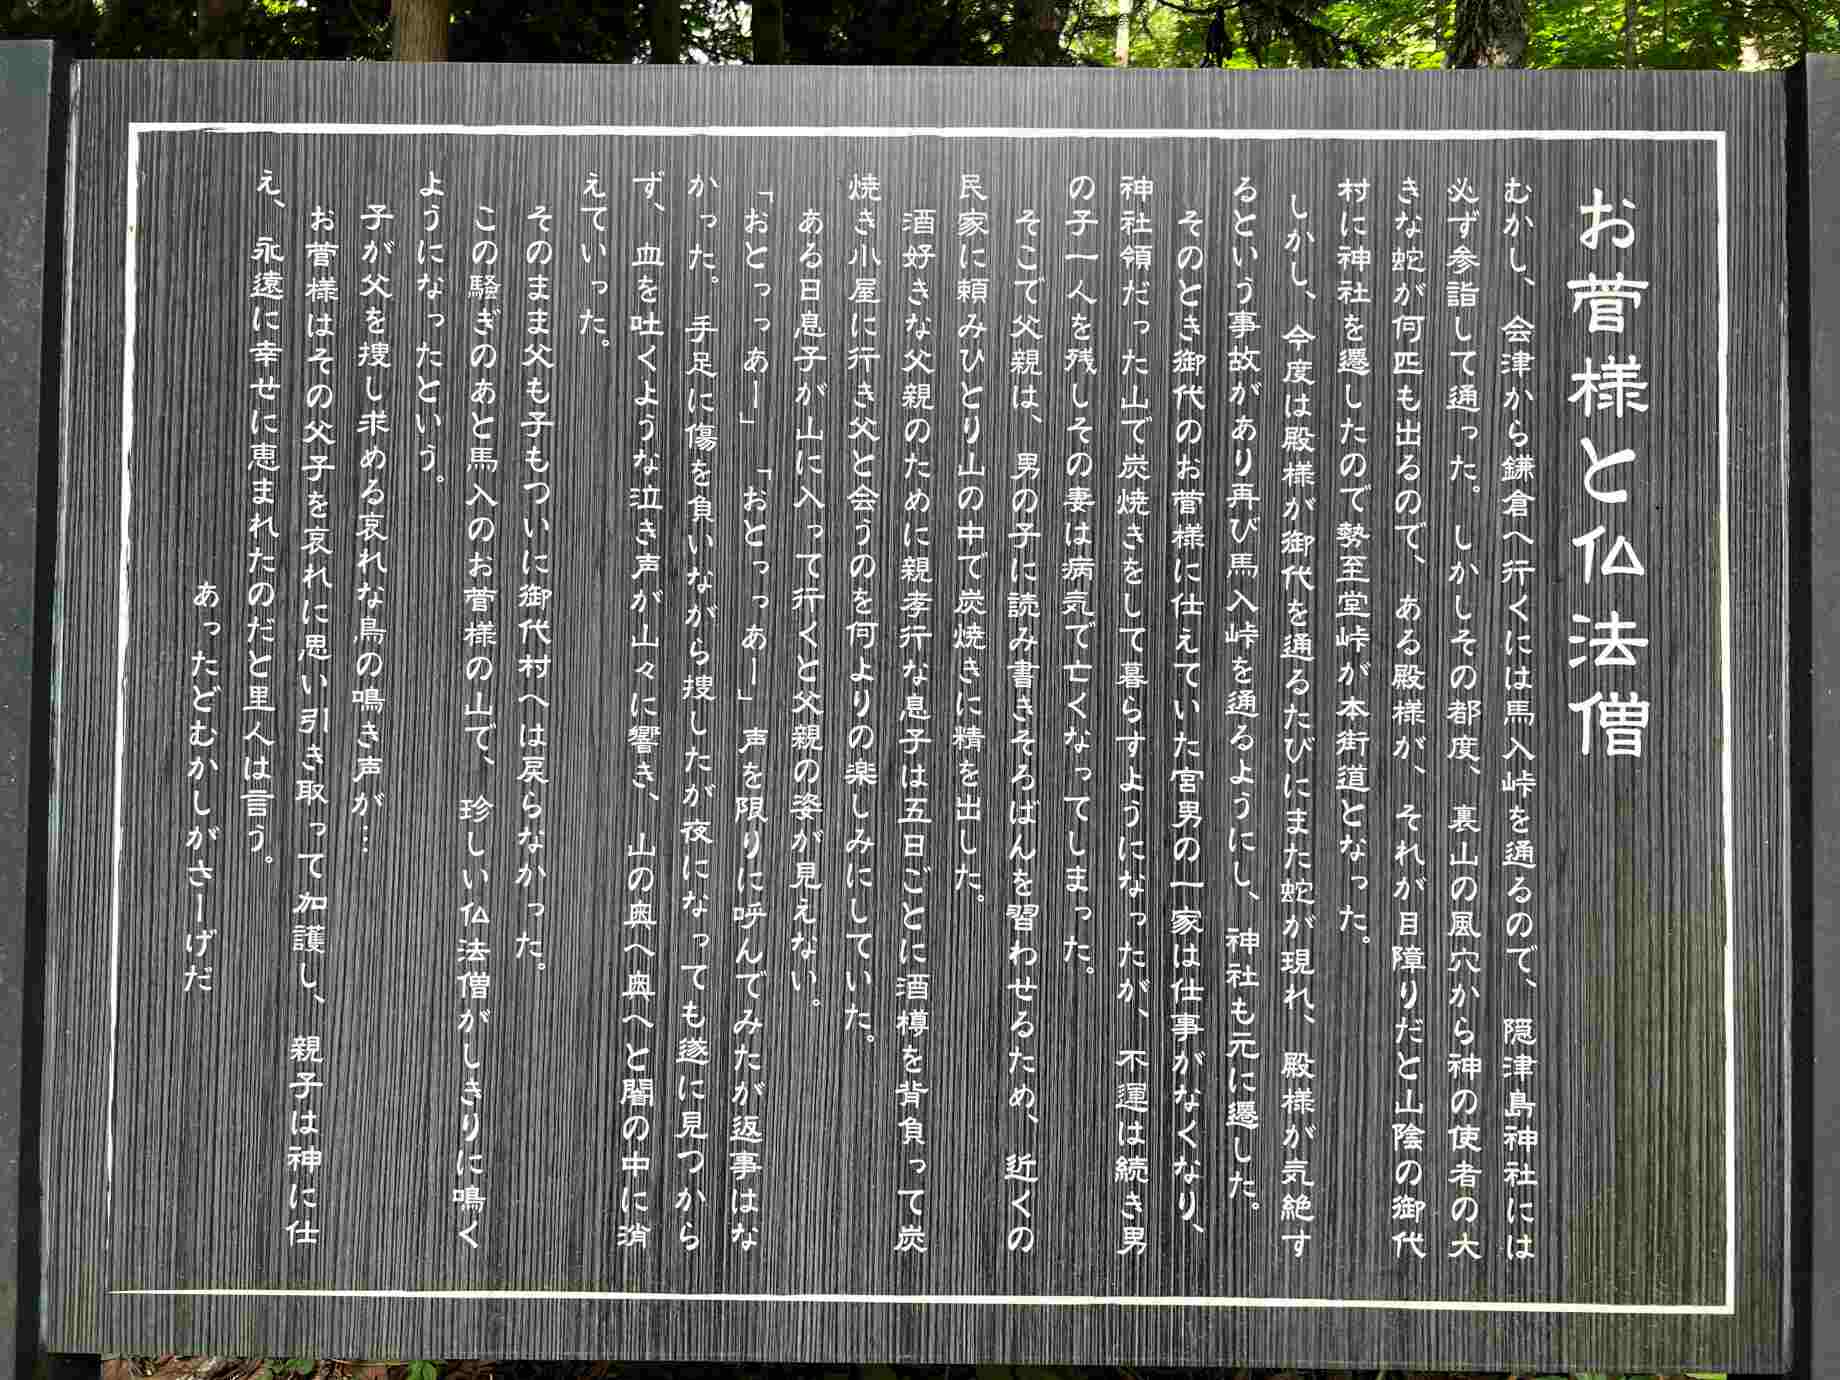 お菅様と仏法僧
むかし、会津から鎌倉へ行くには馬入峠を通るので、隠津島神社には
必ず参詣して通った。しかしその都度、裏山の風穴から神の使者の大
きな蛇が何匹も出るので、ある殿様が、それが目障りだと山陰の御代
村に神社を遷したので勢至堂峠が本街道となった。
しかし、今度は殿様が御代を通るたびにまた蛇が現れ、殿様が気絶す
るという事故があり再び馬入峠を通るようにし、神社も元に遷した。
そのとき御代のお菅様に仕えていた宮男の一家は仕事がなくなり、
神社領だった山で炭焼きをして暮らすようになったが、不運は続き男
の子一人を残しその妻は病気で亡くなってしまった。
そこで父親は、男の子に読み書きそろばんを習わせるため、近くの
民家に頼みひとり山の中で炭焼きに精を出した。
酒好きな父親のために親孝行な息子は五日ごとに酒樽を背負って炭
焼き小屋に行き父と会うのを何よりの楽しみにしていた。
ある日息子が山に入って行くと父親の姿が見えない。
「おとっっあー」「おとっっあー」声を限りに呼んでみたが返事はな
かった。手足に傷を負いながら捜したが夜になっても遂に見つから
ず、血を吐くような泣き声が山々に響き、山の奥へ奥へと闇の中に消
えていった。
そのまま父も子もついに御代村へは戻らなかった。
この騒ぎのあと馬入のお菅様の山で、珍しい仏法僧がしきりに鳴く
ようになったという。
子が父を捜し求める哀れな鳥の鳴き声が…
お菅様はその父子を哀れに思い引き取って加護し、親子は神に仕
え、永遠に幸せに恵まれたのだと里人は言う。
あったどむかしがさーげだ